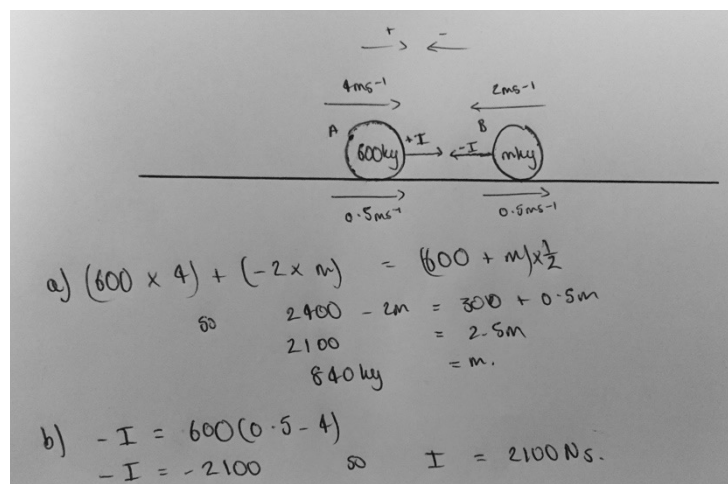 + -
4ms⁻¹ 2ms⁻¹
A B
600kg +I -I mkg
0.5ms⁻¹ 0.5ms⁻¹
a) (600 × 4) + (-2 × m) = (600 + m) × 1/2
so 2400 - 2m = 300 + 0.5m
2100 = 2.5m
840kg = m.
b) -I = 600(0.5 - 4)
-I = -2100 so I = 2100Ns.